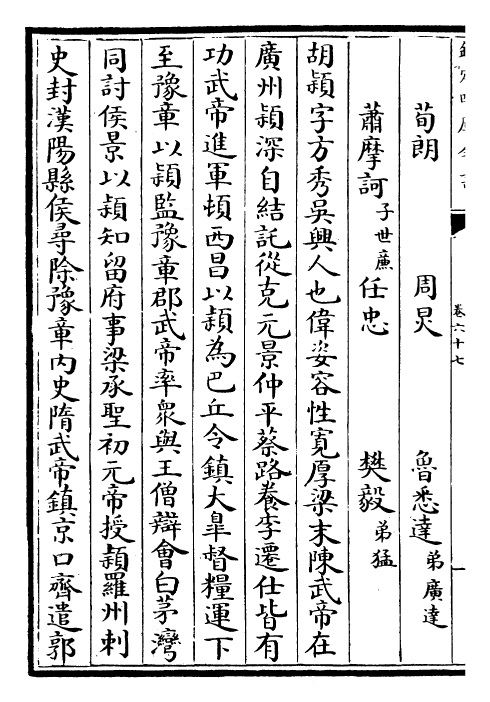 卷六十七
一
荀朗 周炅 魯悉達弟廣達
蕭摩訶子世廉 任忠 樊毅弟猛
胡穎字方秀吳興人也偉姿容性寛厚梁末陳武帝在
廣州穎深自結託從克元景仲平蔡路養李遷仕皆有
功武帝進軍頓西昌以穎為巴丘令鎮大臯督糧運下
至豫章以穎監豫章郡武帝率衆與王僧辯會白茅灣
同討侯景以穎知留府事梁承聖初元帝授穎羅州刺
史封漢陽縣侯尋除豫章内史隋武帝鎮京口齊遣郭